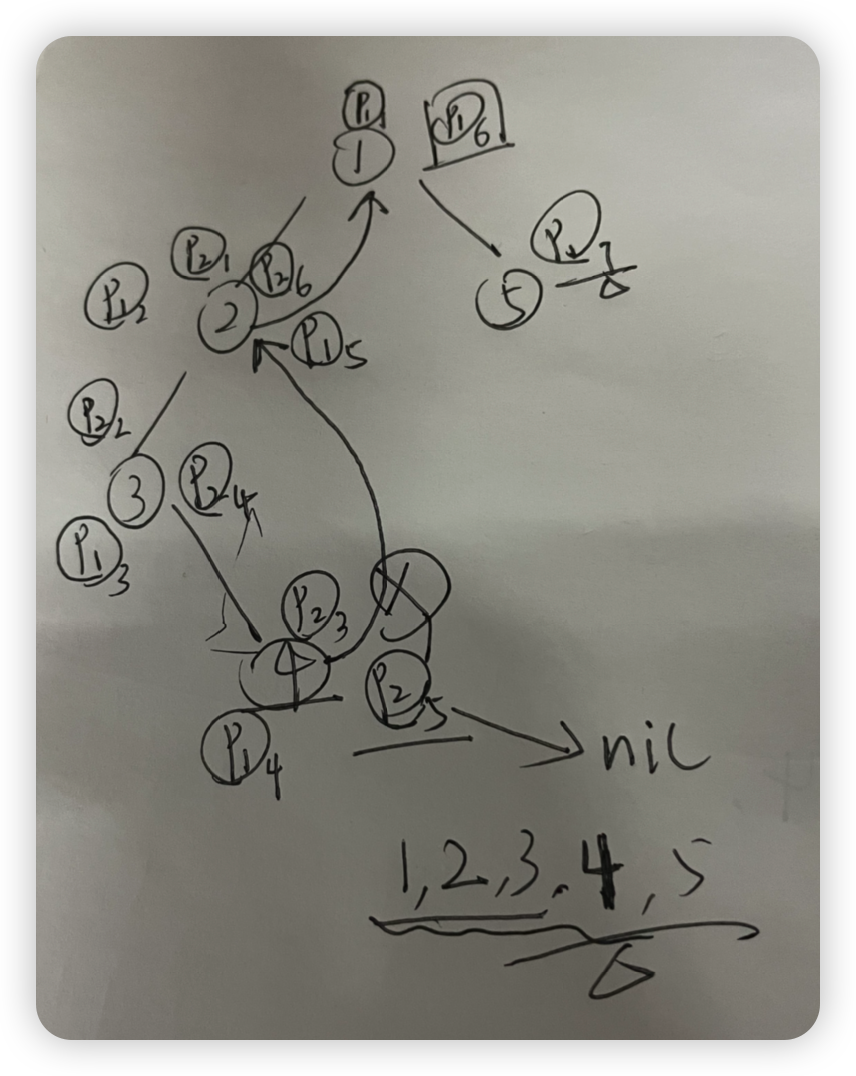 P1
1
P1 6
P2 1
P2 6
P1 7
P1 2
2
5
P1 5
P2 2
3
P2 4
P1 3
P2 3
4
P2 5
P1 4
nil
1,2,3,4,5